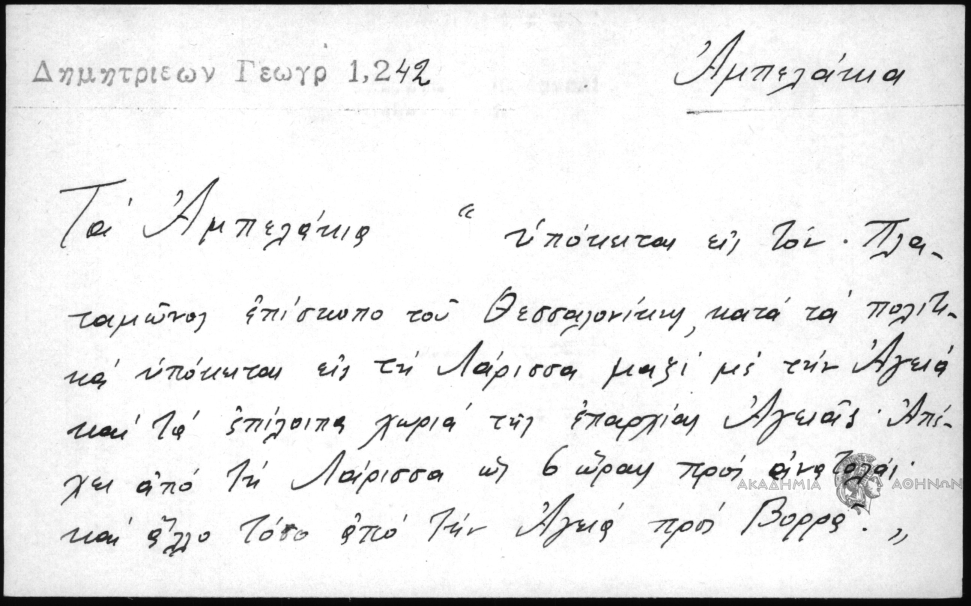 Δημητριεων Γεωγρ 1,242
Ἀμπελάκια
Τά Ἀμπελάκια " ὑπόκεινται εἰς τόν Πλα-
ταμῶνος ἐπίσκοπο τοῦ Θεσσαλονίκης, κατά τά πολιτι-
κά ὑπόκεινται εἰς τή Λάρισσα μαζί μέ τήν Ἀγειά
καί τά ἐπίλοιπα χωριά τῆς ἐπαρχίας Ἀγειᾶς. Ἀπέ-
χει ἀπό τή Λάρισσα ὡς 6 ὥρας πρός ἀνατολάς
καί ἄλλο τόσο ἀπό τήν Ἀγειά πρός Βορρα. „
ΑΚΑΔΗΜΙΑ ΑΘΗΝΩΝ